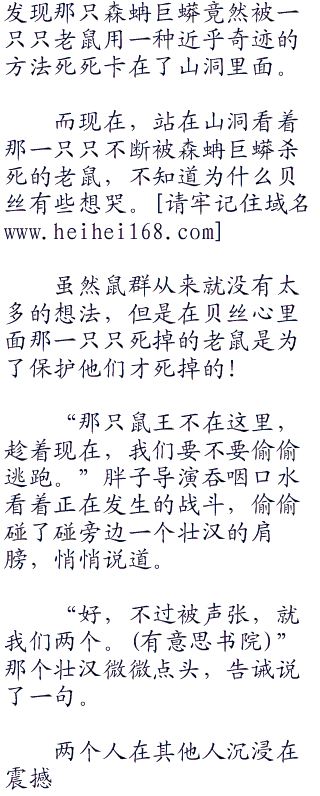 发现那只森蚺巨蟒竟然被一
只只老鼠用一种近乎奇迹的
方法死死卡在了山洞里面。
而现在，站在山洞看着
那一只只不断被森蚺巨蟒杀
死的老鼠，不知道为什么贝
丝有些想哭。[请牢记住域名
www.heihei168.com]
虽然鼠群从来就没有太
多的想法，但是在贝丝心里
面那一只只死掉的老鼠是为
了保护他们才死掉的!
“那只鼠王不在这里，
趁着现在，我们要不要偷偷
逃跑。”胖子导演吞咽口水
看着正在发生的战斗，偷偷
碰了碰旁边一个壮汉的肩
膀，悄悄说道。
“好，不过被声张，就
我们两个。(有意思书院)”
那个壮汉微微点头，告诫说
了一句。
两个人在其他人沉浸在
震撼